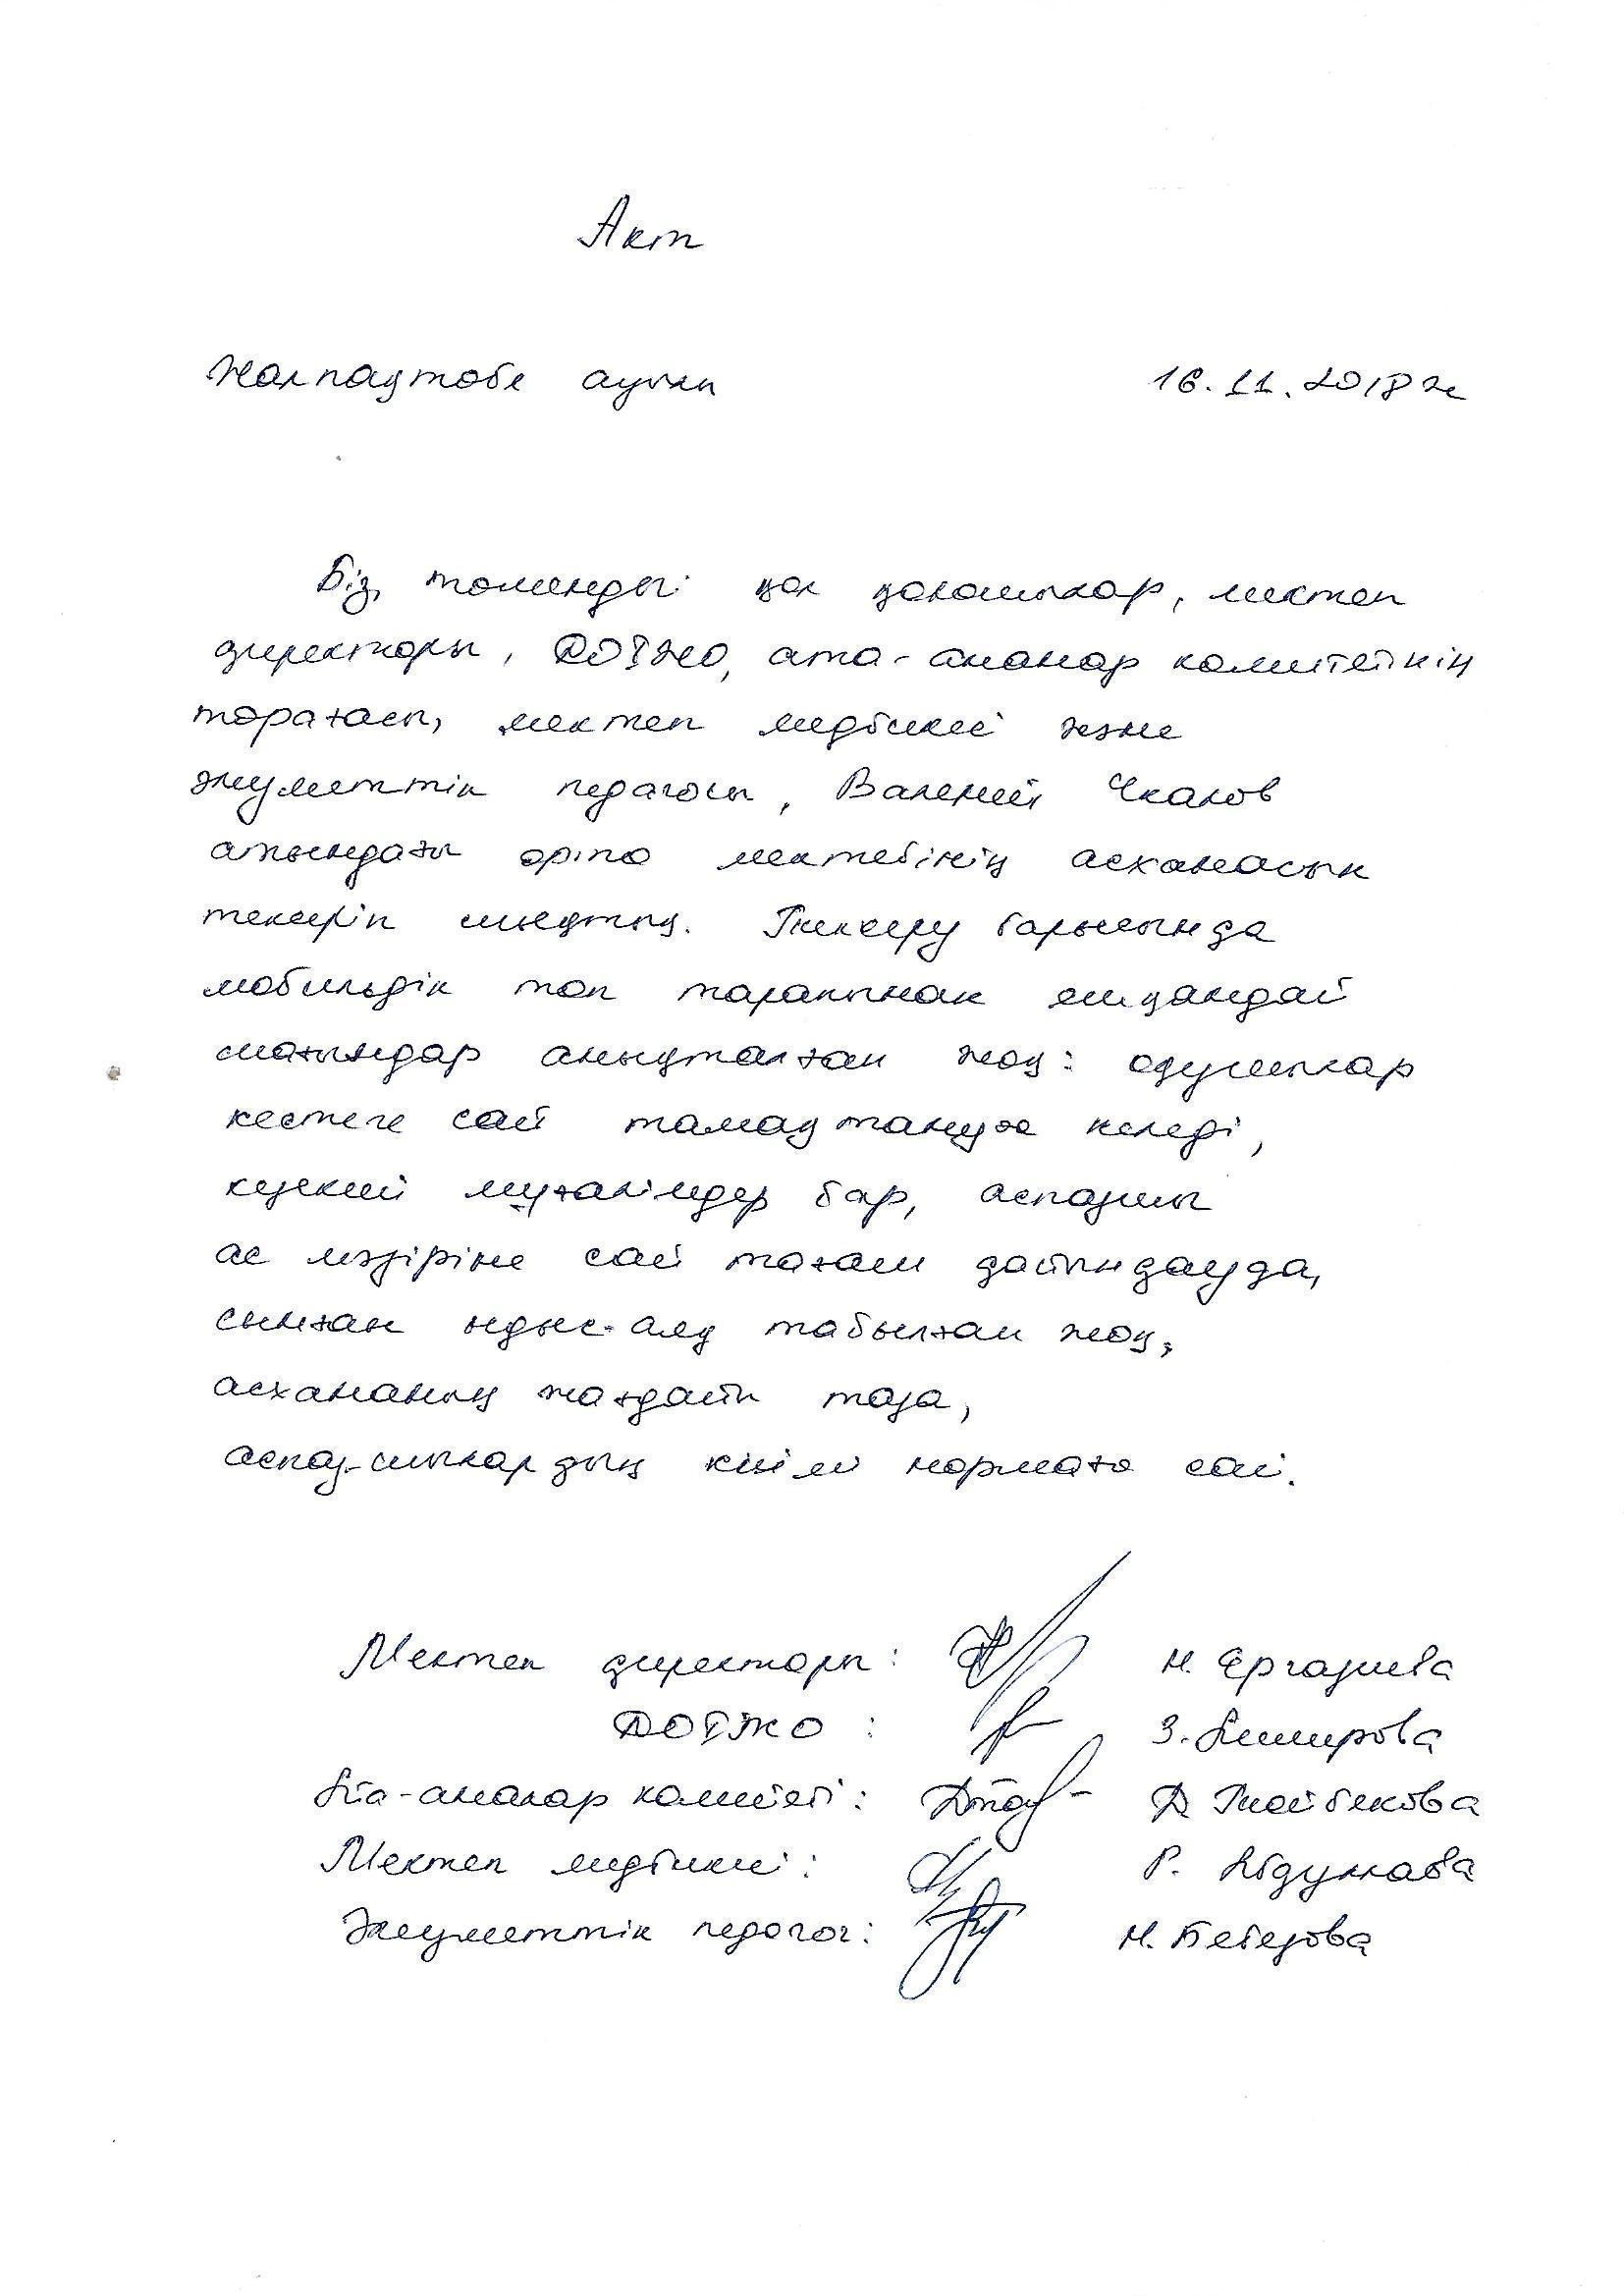 Акт
Жалпақтөбе ауылы 16.11.2018ж
Біз, төменде қол қоюшылар, мектеп
директоры, ДОІЖО, ата-аналар комитетінің
төрағасы, мектеп медбикесі және
әлеуметтік педагогы, Валерий Чкалов
атындағы орта мектебінің асханасын
тексеріп шықтық. Тексеру барысында
мобильдік топ тарапынан ешқандай
шағымдар анықталған жоқ: оқушылар
кестеге сай тамақтануға келеді,
кезекші мұғалімдер бар, аспазшы
ас мәзіріне сай тағам дайындауда,
сынған ыдыс-аяқ табылған жоқ,
асхананың жағдайы таза,
аспаз-шылардың киімі нормаға сай.
Мектеп директоры: Н. Ергазиева
ДОІЖО: З. Аширова
Ата-аналар комитеті: Д Тойбекова
Мектеп медбикесі: Р. Абдуллаева
Әлеуметтік педагог: М. Бебезова